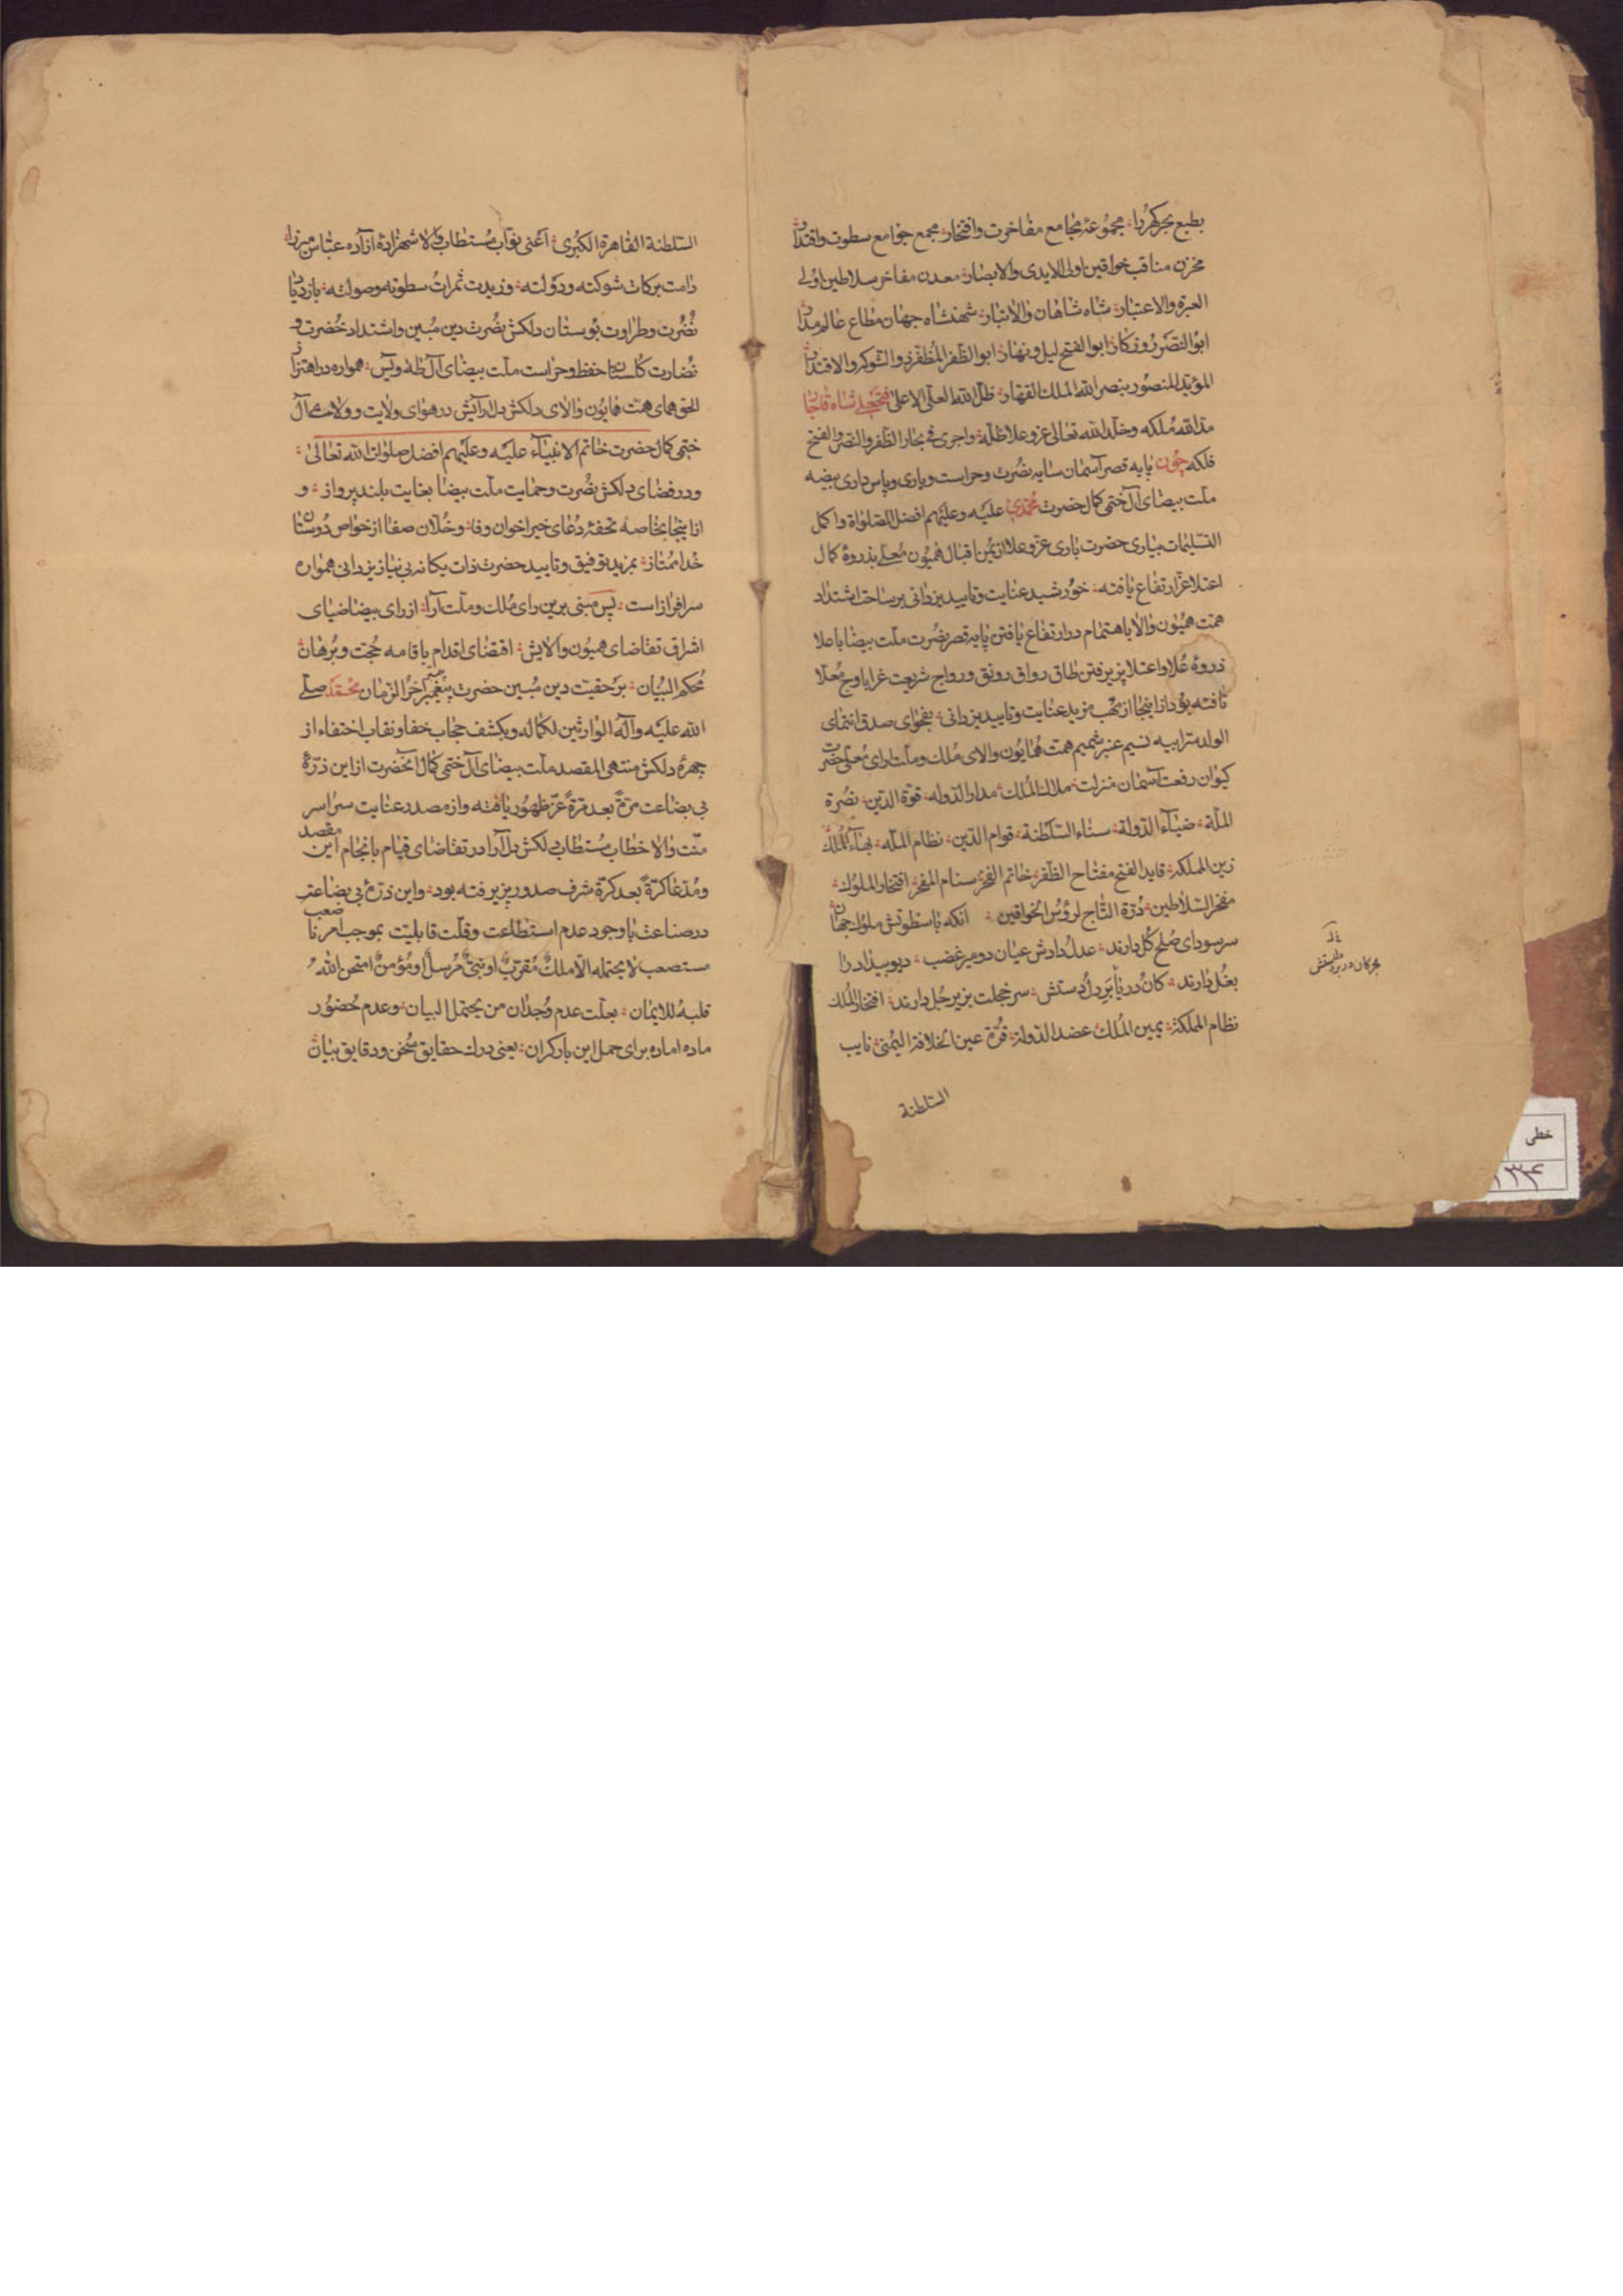 بطبع بحر گهر را مجموعهٔ مجامع مفاخرت وافتخار مجمع جوامع سطوت واقتدار
مخزن مناقب خواقین اولی الایدی والابصار معدن مفاخر سلاطین اولی
العبرة والاعتبار شاه شاهان والاتبار شهنشاه جهان مطاع عالم مدار
ابوالنصر روزکار ابوالفتح لیل ونهار ابوالظفر المظفر ذوالشوکه والاقتدار
المؤید المنصور بنصر الله الملک القهار ظل الله العلی الاعلی فتحعلی شاه قاجار
مد الله ملکه وخلد الله تعالی عز وعلا ظله واجری فی بحار الظفر والنصر والفتح
فلکه چون پایه قصر آسمان سایه نصرت وحراست ویاری وپاس داری بیضه
ملت بیضای آل ختمی کمال حضرت محمدی علیه وعلیهم افضل الصلواة واکمل
التسلیمات بیاری حضرت باری عز وعلا از یمن اقبال همیون معلی بذروهٔ کمال
اعتلا عز ارتفاع یافته خورشید عنایت وتایید یزدانی بر ساحت اشتداد
همت همیون والا باهتمام در ارتفاع یافتن پایه قصر نصرت ملت بیضا باعلا
ذروهٔ علا واعتلا پزیرفتن طاق رواق رونق ورواج شریعت غرا باوج معلا
تافته بود از اینجا از مهب مزید عنایت وتایید یزدانی بفحوای صدق انتمای
الولد سر ابیه نسیم عنبر شمیم همت همایون والای ملک وملت رای معلی حضرت
کیوان رفعت آسمان منزلت ملاک الملک مدار الدوله قوة الدین نصرة
الملة ضیاء الدولة سناء السلطنة قوام الدین نظام الملة بهاء الملک
زین المملکة قاید الفتح مفتاح الظفر خاتم الفخر سنام المفخر افتخار الملوک
مفخر السلاطین درة التاج لرؤس الخواقین آنکه با سطوتش ملوک جهان
سر سودای صلح کل دارند عدل دادش عیان دو میر غضب دیو بیداد را
بغل دارند کان ودریا بر دل ودستش سر خجلت بزیر جل دارند افتخار الملک
نظام المملکة یمین الملک عضد الدولة قرة عین الخلافة الیمنی نایب
السلطنة
السلطنة القاهرة الکبری اعنی نواب مستطاب والا شهزادهٔ آزاده عباس میرزا
دامت برکات شوکته ودولته وزیدت ثمرات سطوته وصولته بازدیاد
نضرت وطراوت بوستان دلکش نصرت دین مبین واشتداد خضرت و
نضارت کلستان حفظ وحراست ملت بیضای آل طه ویس همواره در اهتزاز
الحق همای همت همایون والای دلکش دلارایش در هوای ولایت وولاء آل
ختمی کمال حضرت خاتم الانبیاء علیه وعلیهم افضل صلوات الله تعالی
ودر فضای دلکش نصرت وحمایت ملت بیضا بغایت بلند پرواز و
از اینجا بخاصه تحفهٔ دعای خیر اخوان وفا وخلان صفا از خواص دوستان
خدا ممتاز بمزید توفیق وتایید حضرت ذات یکانه بی نیاز یزدانی همواره
سرافراز است پس مبنی برین رای ملک وملت آرا از رای بیضا ضیای
اشراق تقاضای همیون والایش اقتضای اقدام باقامه حجت وبرهان
محکم البنیان بر حقیت دین مبین حضرت پیغمبر آخر الزمان محمد صلی
الله علیه وآله الوارثین لکماله وبکشف حجاب خفا ونقاب اختفاء از
چهرهٔ دلکش منتهی المقصد ملت بیضای آل ختمی کمال آنحضرت از این ذرهٔ
بی بضاعت مرة بعد مرة عز ظهور یافته واز مصدر عنایت سراسر
منت والا خطاب مستطاب دلکش دلآرا در تقاضای قیام بانجام این مقصد
ومدعا کرة بعد کرة شرف صدور پزیرفته بود واین ذرهٔ بی بضاعت
در صناعت با وجود عدم استطاعت وقلت قابلیت بموجب امرنا صعب
مستصعب لا یحتمله الا ملک مقرب او نبی مرسل او مؤمن امتحن الله
قلبه للایمان بعلت عدم وجدان من یحتمل البیان وعدم حضور
ماده اماده برای حمل این بار کران یعنی درک حقایق سخن ودقایق بیان
خطی